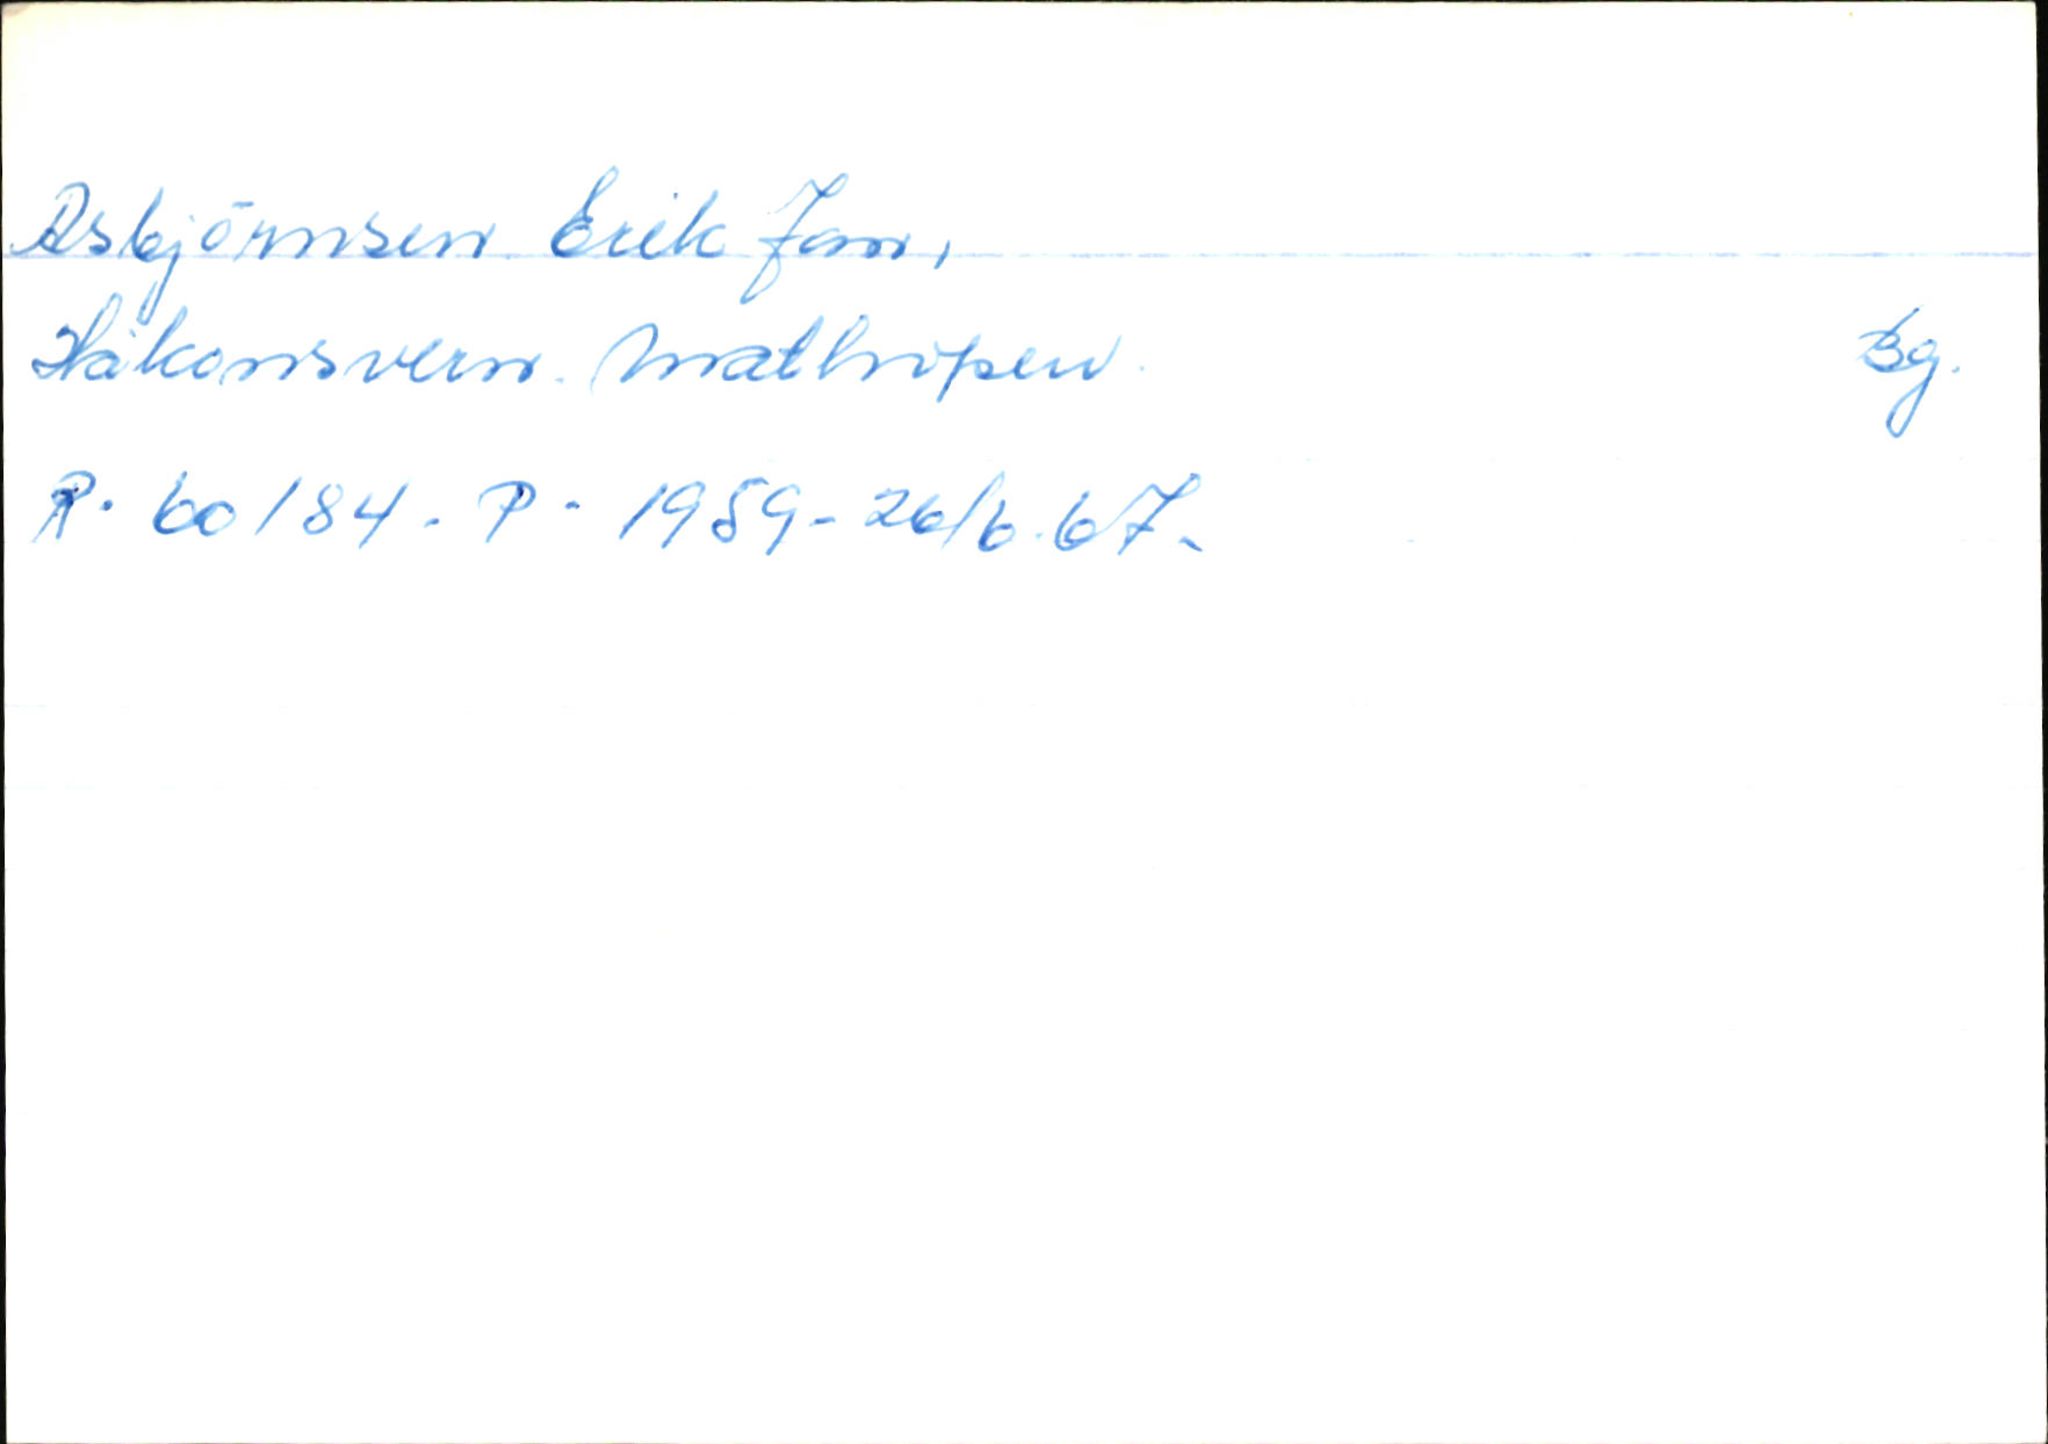 Asbjörnsen Erik Jan,
Håkonsvern. Mathopen. Bg.
R. 60/84. P. 1959- 26/6.67-